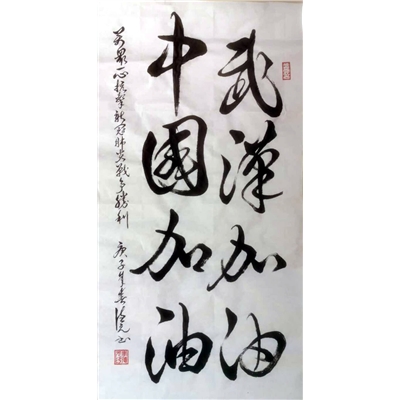 武漢加油
中國加油
萬眾一心抗擊新冠肺炎戰爭勝利
庚子年春
書